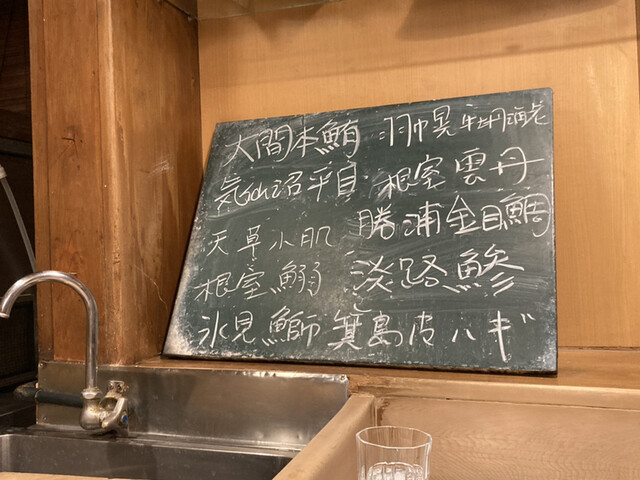 大間本鮪
羽幌牡丹海老
気仙沼平目
根室雲丹
天草小肌
勝浦金目鯛
根室鰯
淡路鯵
氷見鰤
箕島皮ハギ